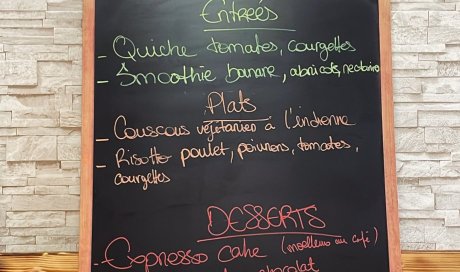 Entrées
- Quiche tomates, courgettes
- Smoothie banane, abricots, nectarine
Plats
- Couscous végétarien à l'indienne
- Risotto poulet, poivrons, tomates,
courgettes
DESSERTS
- Copresso cake (moelleux au café)
chocolat